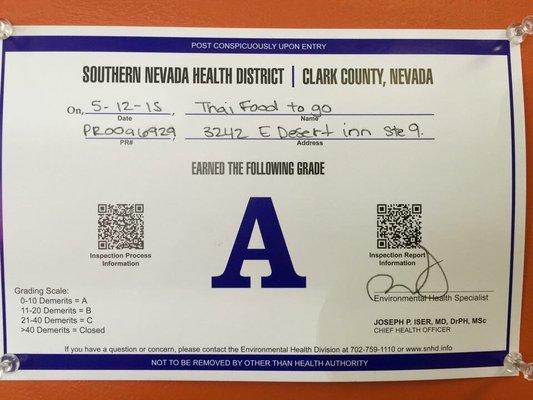 POST CONSPICUOUSLY UPON ENTRY
SOUTHERN NEVADA HEALTH DISTRICT | CLARK COUNTY, NEVADA
On, 5-12-15, Thai Food to go
Date Name
PR0096929, 3242 E Desert inn Ste 9.
PR# Address
EARNED THE FOLLOWING GRADE
A
Inspection Process
Information
Inspection Report
Information
Environmental Health Specialist
Grading Scale:
0-10 Demerits = A
11-20 Demerits = B
21-40 Demerits = C
>40 Demerits = Closed
JOSEPH P. ISER, MD, DrPH, MSc
CHIEF HEALTH OFFICER
If you have a question or concern, please contact the Environmental Health Division at 702-759-1110 or www.snhd.info
NOT TO BE REMOVED BY OTHER THAN HEALTH AUTHORITY